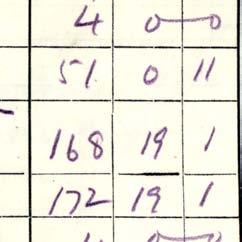 4 0—0
51 0 11
168 19 1
172 19 1